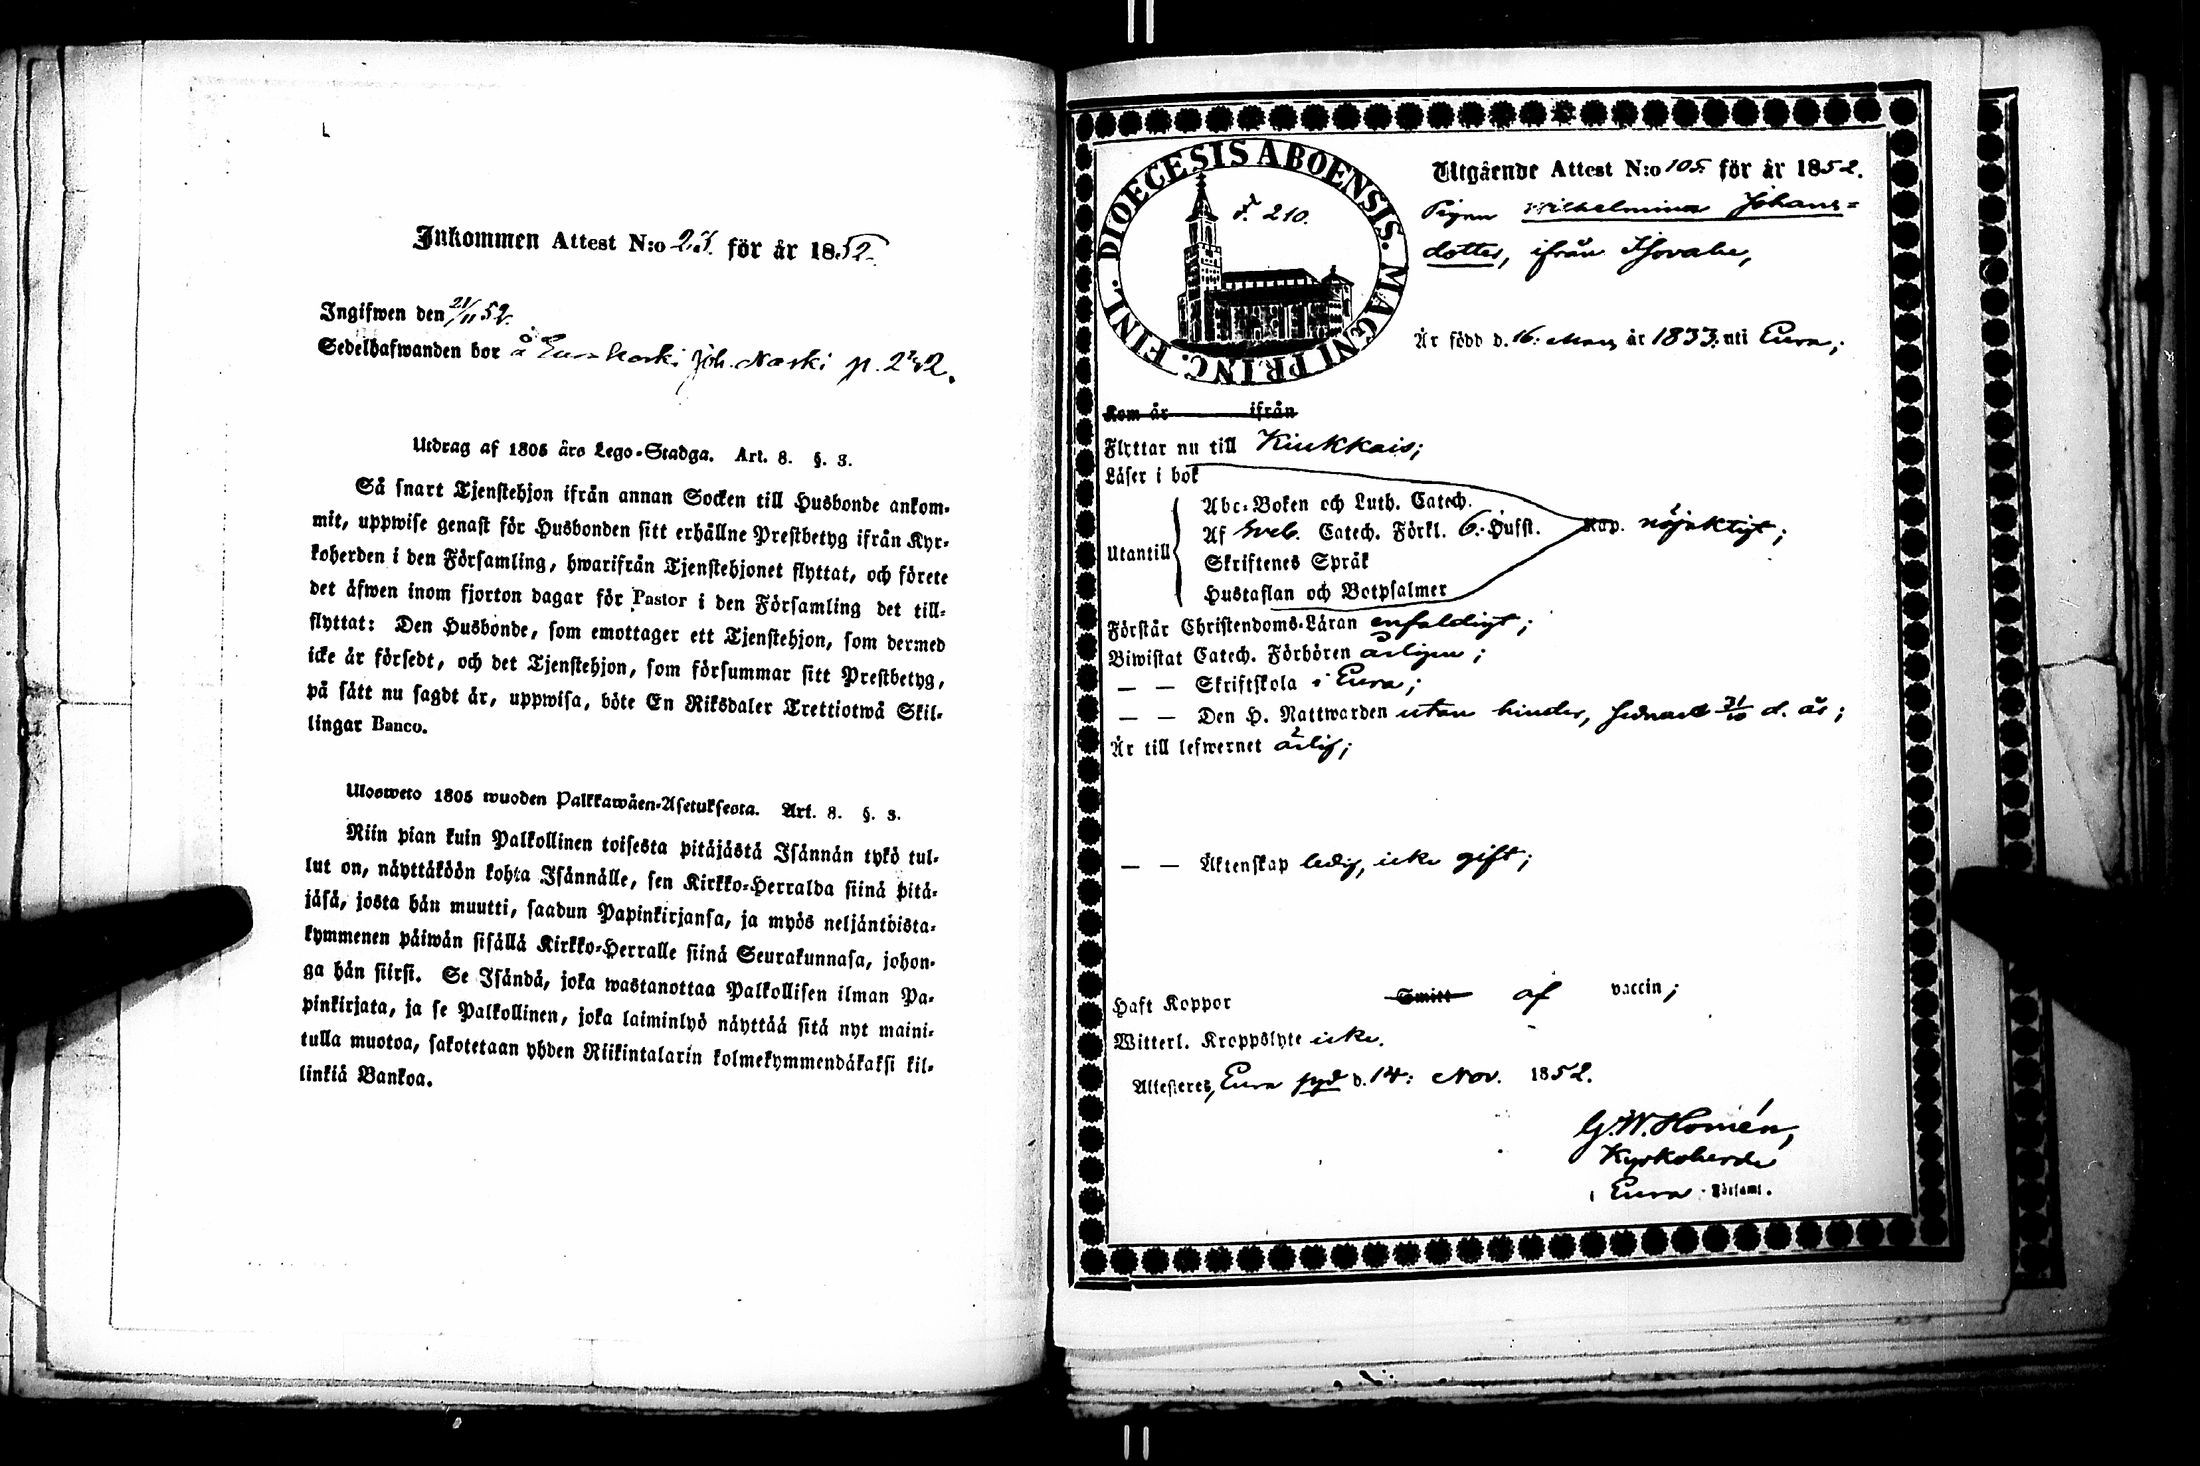 Inkommen Attest N:o 23. för år 1852.
Ingifwen den 21/11 52.
Sedelhafwanden bor å Eurakoski Joh. Naski p. 252.
Utdrag af 1805 års Lego-Stadga. Art. 8. §. 3.
Så snart Tjenstehjon ifrån annan Socken till Husbonde ankom-
mit, uppwise genast för Husbonden sitt erhållne Prestbetyg ifrån Kyr-
koherden i den Församling, hwarifrån Tjenstehjonet flyttat, och förete
det äfwen inom fjorton dagar för Pastor i den Församling det till-
flyttat: Den Husbonde, som emottager ett Tjenstehjon, som dermed
icke är försedt, och det Tjenstehjon, som försummar sitt Prestbetyg,
på sätt nu sagdt är, uppwisa, böte En Riksdaler Trettiotwå Skil-
lingar Banco.
Ulosweto 1805 wuoden Palkkawäen-Asetuksesta. Art. 8. §. 3.
Niin pian kuin Palkollinen toisesta pitäjästä Isännän tykö tul-
lut on, näyttäköön kohta Isännälle, sen Kirkko-Herralda siinä pitä-
jäsä, josta hän muutti, saadun Papinkirjansa, ja myös neljäntoista-
kymmenen päiwän sisällä Kirkko-Herralle siinä Seurakunnasa, johon-
ga hän siirsi. Se Isändä, joka wastanottaa Palkollisen ilman Pa-
pinkirjata, ja se Palkollinen, joka laiminlyö näyttää sitä nyt maini-
tulla muotoa, sakotetaan yhden Riikintalarin kolmekymmendäkaksi kil-
linkiä Bankoa.
DIOECESIS ABOENSIS. MAGNI PRINC. FINL.
F. 210.
Utgående Attest N:o 105. för år 1852.
Pigan Wilhelmina Johans-
dotter, ifrån
Är född d. 16: Mars år 1833. uti Eura;
Kom år ifrån
Flyttar nu till Kiukkais;
Läser i bok
Utantill
Abc-Boken och Luth. Catech.
Af Sveb. Catech. Förkl. 6. Hufst.
Skriftenes Språk
Hustaflan och Botpsalmer
Kap. nöjaktigt;
Förstår Christendoms-Läran enfaldigt;
Biwistat Catech. Förhören årligen;
— — Skriftskola i Eura;
— — Den H. Nattwarden utan hinder, sednast 31/10 d. år;
Är till lefwernet ärlig;
— — Äktenskap ledig, icke gift;
Haft Koppor Smitt af vaccin;
Witterl. Kroppslyte icke.
Attesteres, Eura pgd d. 14: Nov. 1852.
G. W. Homén,
Kyrkoherde
i Eura Församl.